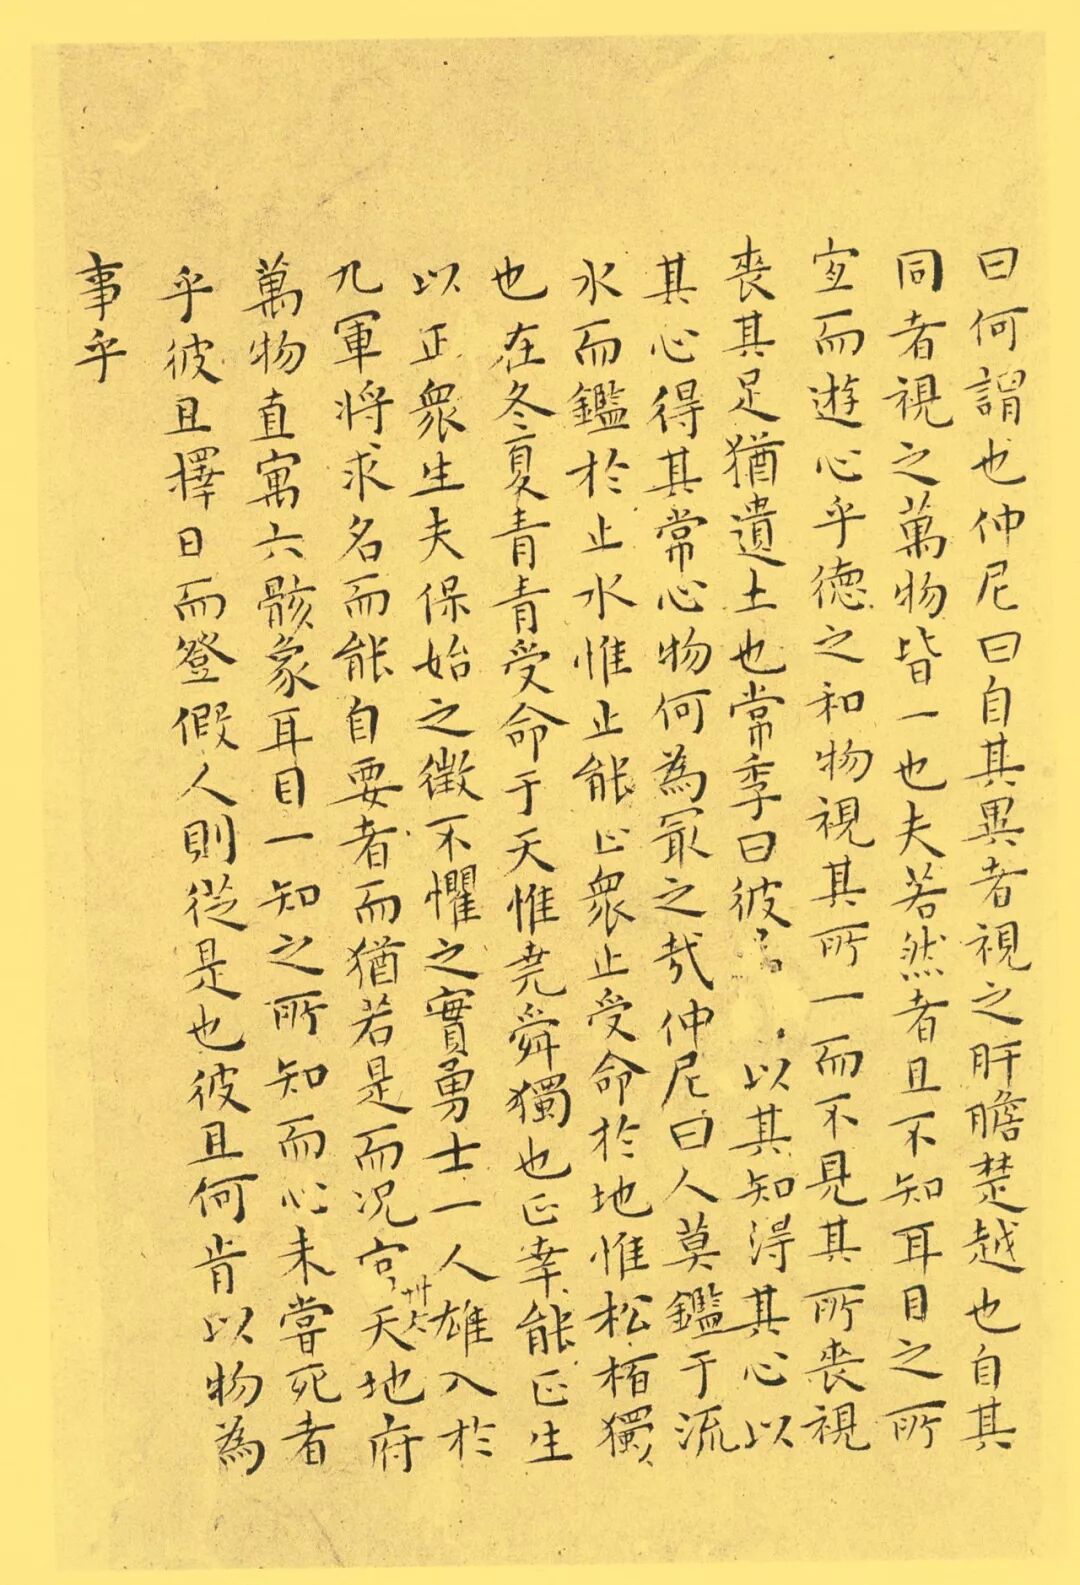 曰何謂也仲尼曰自其異者視之肝膽楚越也自其
同者視之萬物皆一也夫若然者且不知耳目之所
宜而遊心乎德之和物視其所一而不見其所喪視
喪其足猶遺土也常季曰彼以其知得其心以
其心得其常心物何為最之哉仲尼曰人莫鑑于流
水而鑑於止水惟止能止眾止受命於地惟松栢獨
也在冬夏青青受命于天惟堯舜獨也正幸能正生
以正衆生夫保始之徵不懼之實勇士一人雄入於
九軍將求名而能自要者而猶若是而況官天地府
萬物直寓六骸象耳目一知之所知而心未嘗死者
乎彼且擇日而登假人則從是也彼且何肯以物為
事乎